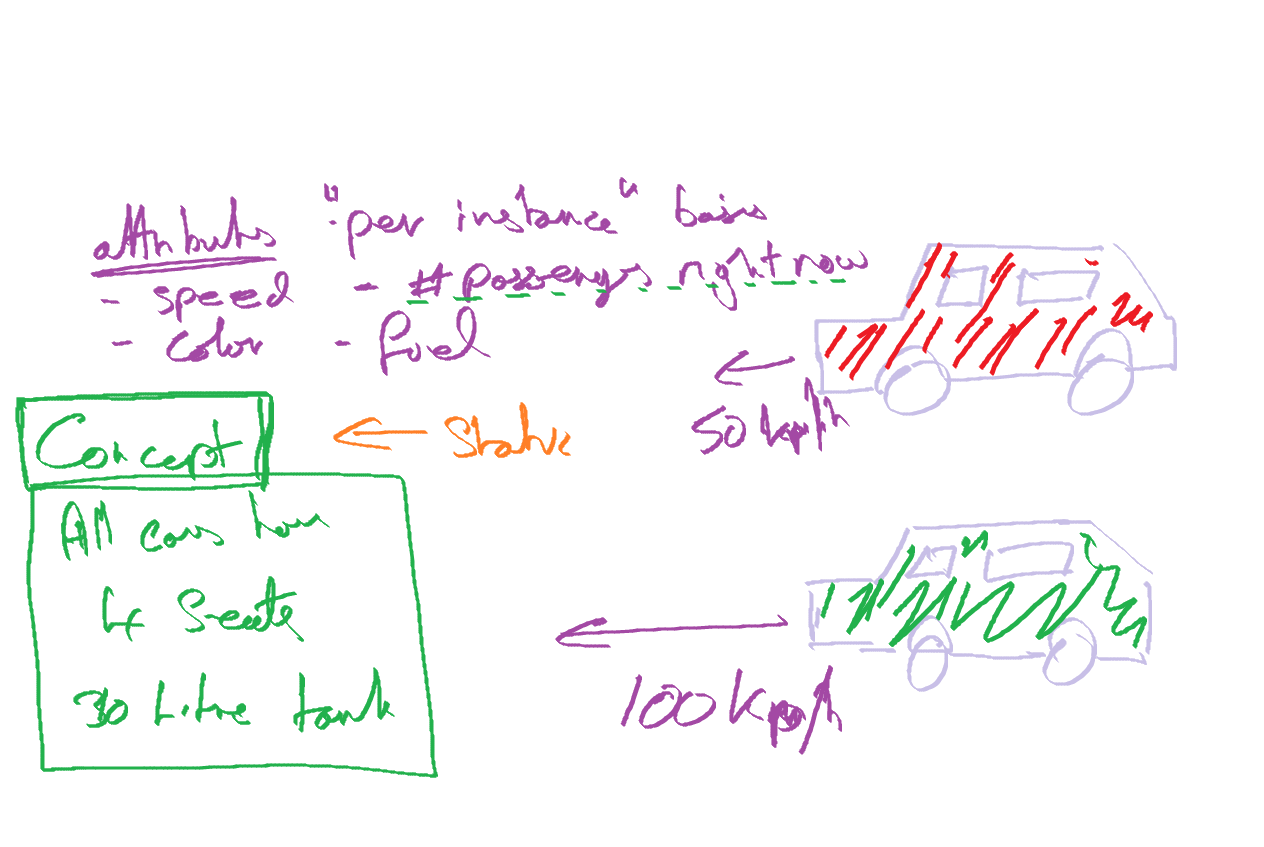 attributes "per instance" basis
- speed - # passengers right now
- color - fuel
50 kp/h
Concept ← Static
All cars have
4 Seats
30 Litre tank
100 kp/h